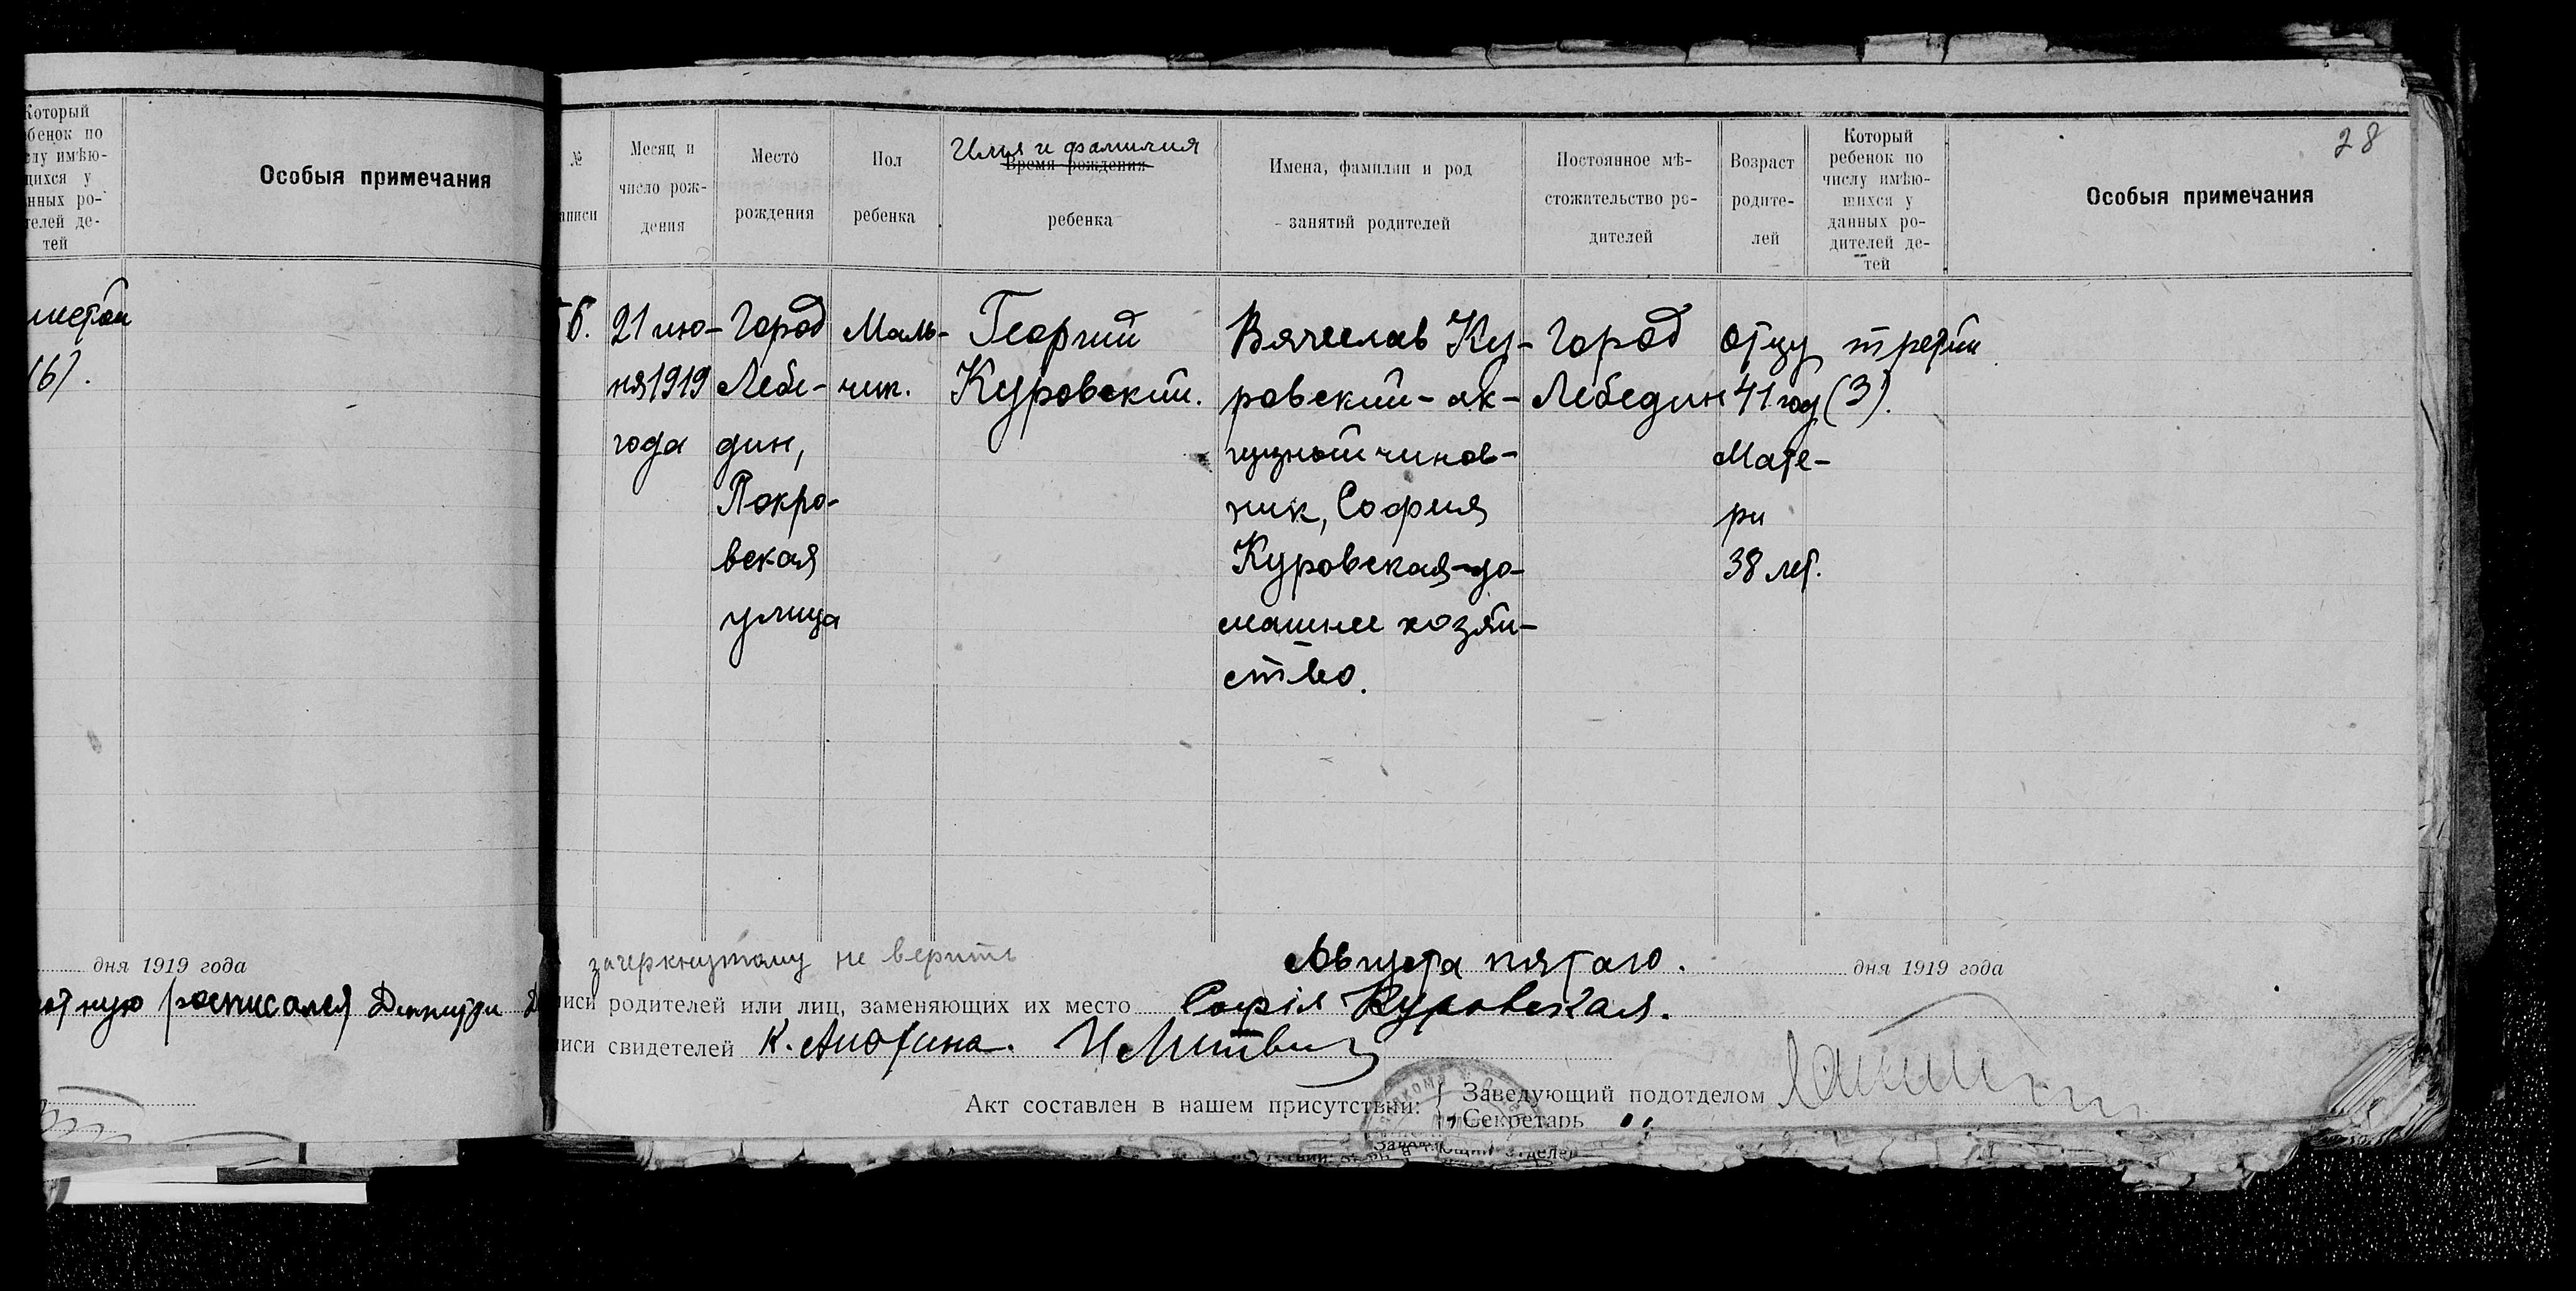 Который
бенок по
слу имѣю-
щихся у
нных ро-
телей де-
тей
Особыя примечания
(6).
дня 1919 года
росписался Димитри
28
№
аписи
Месяц и
число рож-
дения
Место
рождения
Пол
ребенка
Имя и фамилия
Время рождения
ребенка
Имена, фамилии и род
занятий родителей
Постоянное мѣ-
стожительство ро-
дителей
Возраст
родите-
лей
Который
ребенок по
числу имѣю-
щихся у
данных ро-
дителей де-
тей
Особыя примечания
6.
21 ию-
ня 1919
года
Город
Лебе-
дин,
Покро-
вская
улица
Маль-
чик.
Георгий
Куровский.
Вячеслав Ку-
ровский - ак-
цизный чинов-
ник, София
Куровская - до-
машнее хозяй-
ство.
Город
Лебедин
Отцу
41 год
Мате-
ри
38 лет.
третий
(3).
зачеркнутому не верить
Августа пятаго. дня 1919 года
иси родителей или лиц, заменяющих их место Софія Куровская.
иси свидетелей К. Анохина. И Литвин
Акт составлен в нашем присутствии:
Заведующий подотделом
Секретарь